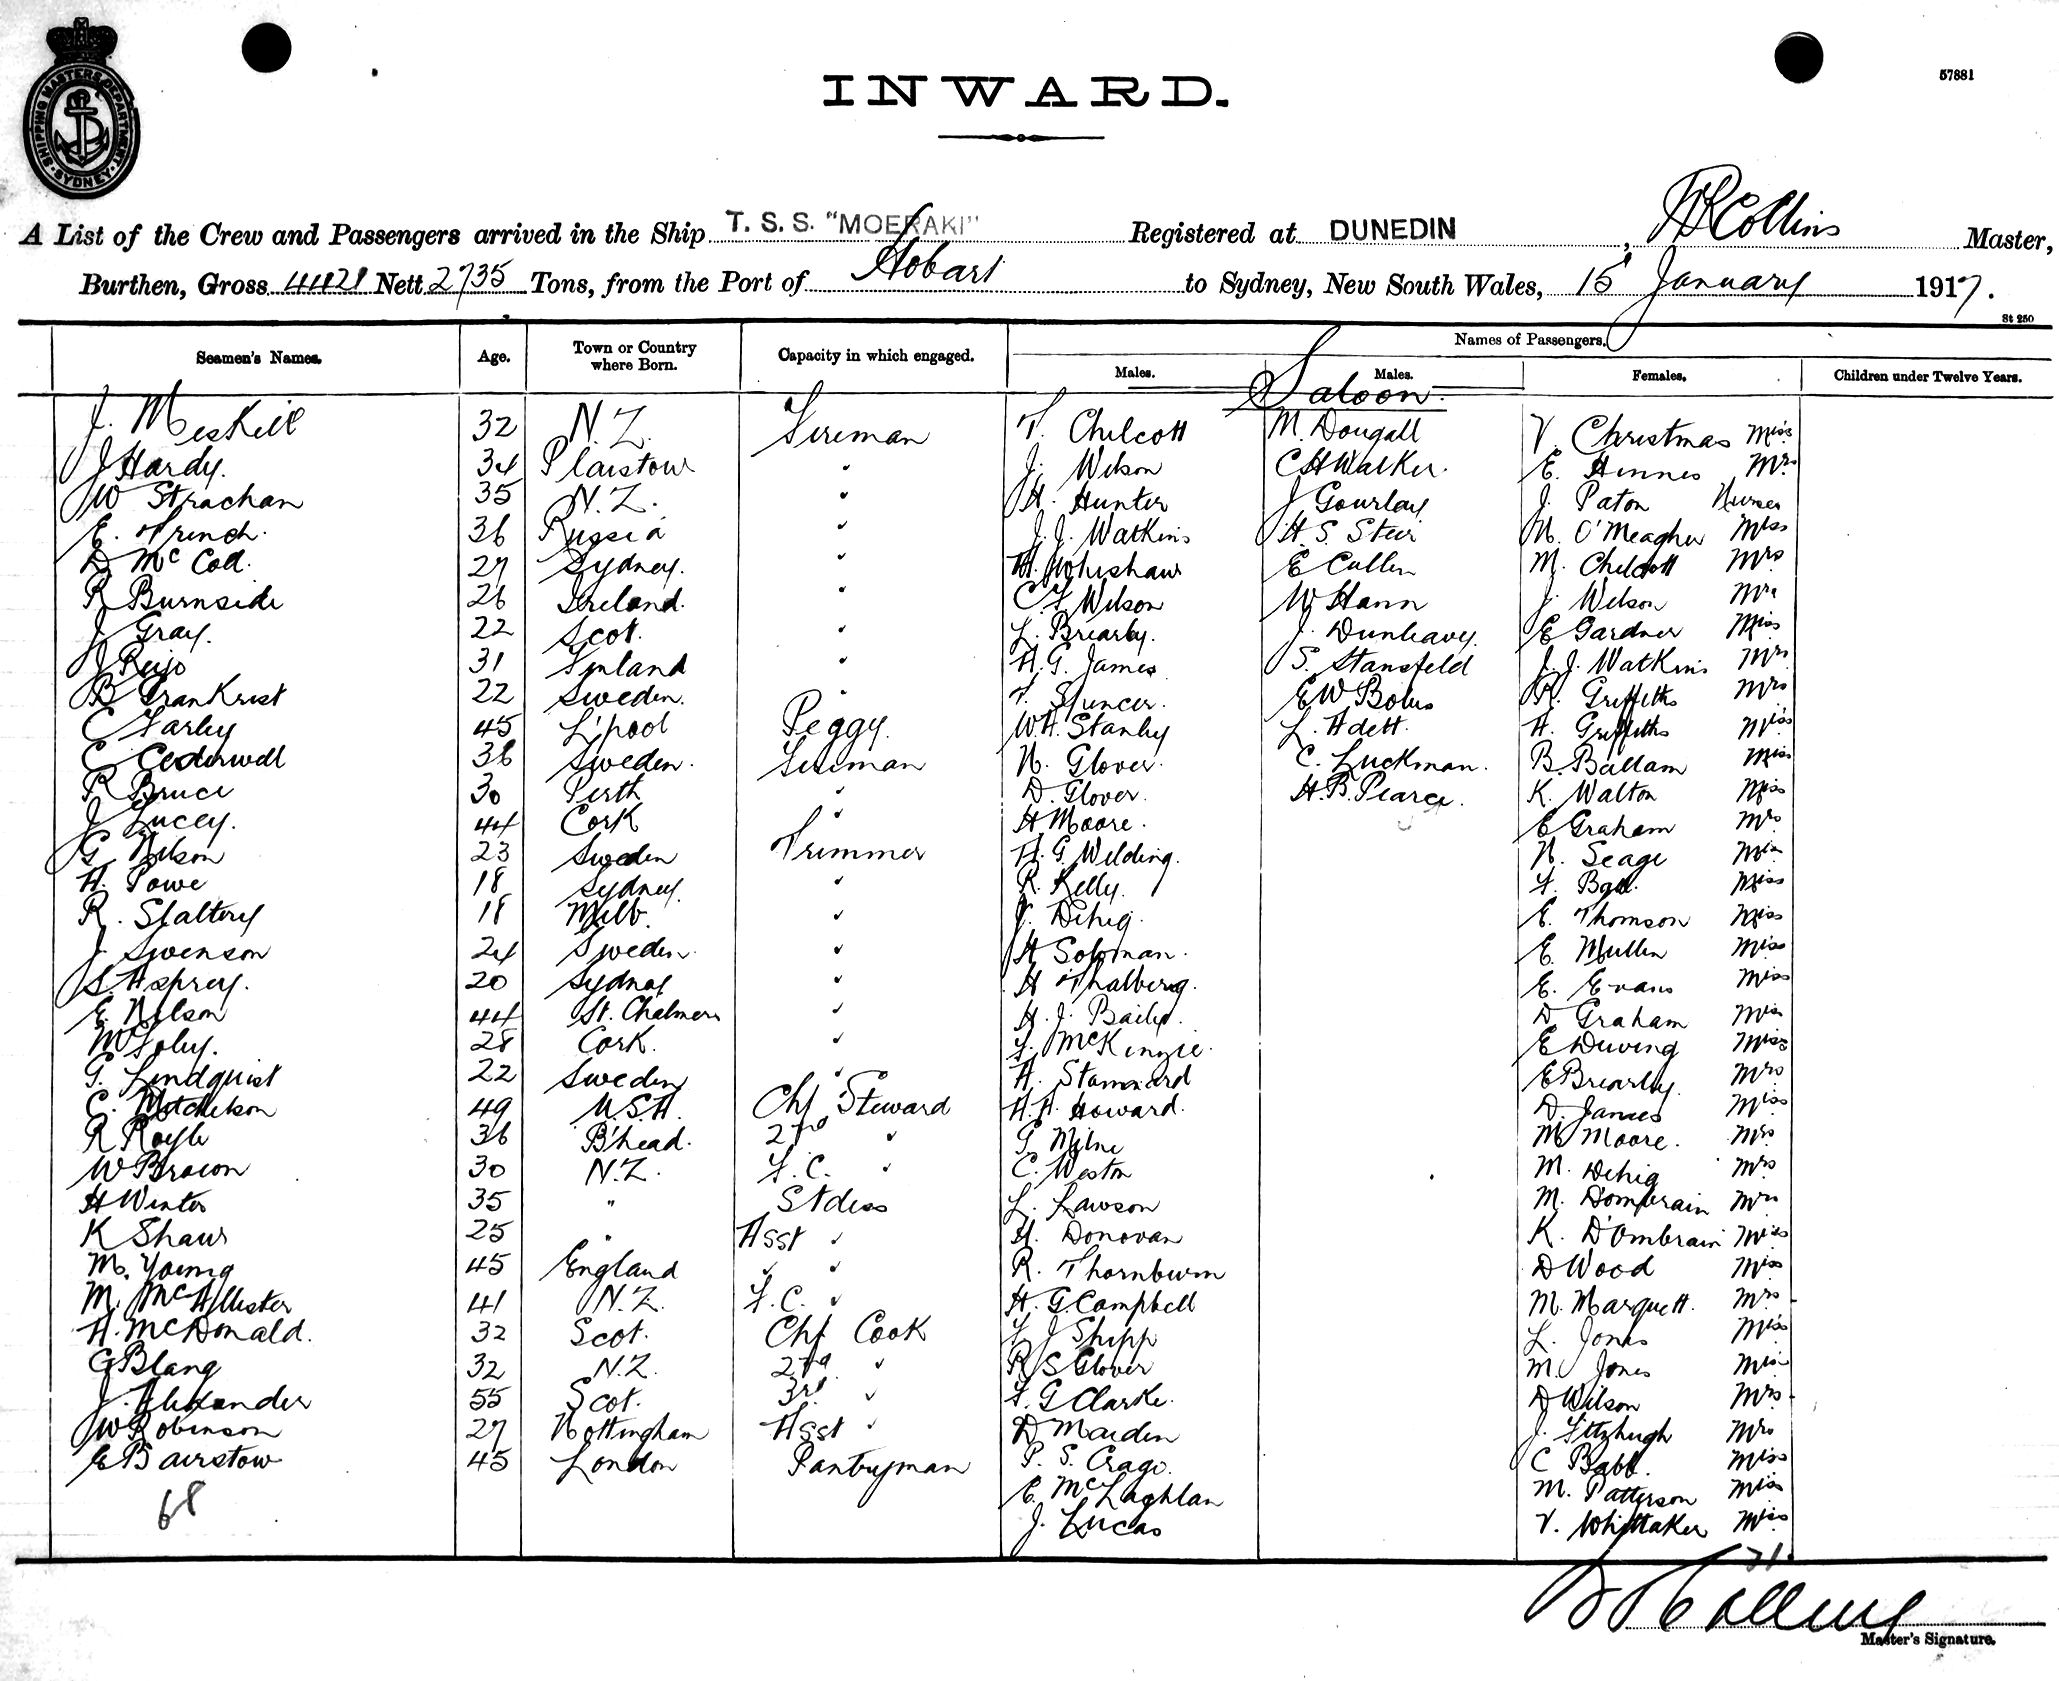 SHIPPING MASTERS DEPARTMENT SYDNEY
57881
INWARD.
A List of the Crew and Passengers arrived in the Ship T. S. S. "MOERAKI" Registered at DUNEDIN, Collins Master,
Burthen, Gross 4421 Nett 2735 Tons, from the Port of Hobart to Sydney, New South Wales, 15 January 1917.
St 250
Seamen's Names. Age. Town or Country where Born. Capacity in which engaged. Names of Passengers.
Males. Males. Females. Children under Twelve Years.
Saloon.
J. Meskill 32 N.Z. Fireman T. Chilcott M. Dougall V. Christmas Miss
J Hardy. 34 Plaistow " J. Wilson C H Walker. E. Hinnes Mrs
W Strachan 35 N.Z. " H. Hunter J Gourlay J. Paton Nurse
E. French. 36 Russia " J. J. Watkins H. S. Steir M. O'Meagher Miss
D McColl. 27 Sydney. " H. Whishaw E Cullen M. Chilcott Mrs
R Burnside 26 Ireland. " C. F. Wilson W Hann J. Wilson Mrs
J Gray. 22 Scot. " L. Brearby. J. Dunleavy. E Gardner Miss
J Reijo 31 Finland " H. G. James S. Stansfeld J. J. Watkins Mrs
B Grankrist 22 Sweden. " F. Spencer. E W Bolus R. Griffiths Mrs
C Farley 45 L'pool Peggy. W. H. Stanley L. Adett. H. Griffiths Miss
C Cederwall 38 Sweden. Fireman N. Glover. C. Luckman. B. Ballam Miss
R Bruce 30 Perth " D. Glover. H. B. Pearce. K. Walton Miss
J Lucey. 44 Cork " H Moore. E Graham Mrs
G Nilson 23 Sweden Trimmer H. G. Welding. N. Seage Miss
H. Powe 18 Sydney. " R. Kelly. F. Ball. Miss
R. Slattery 18 Melb. " J. Dehig. E. Thomson Miss
J. Swenson 24 Sweden. " H Soloman. E. Mullen Miss
S. Asprey. 20 Sydney " H Thalberg. E. Evans Miss
E. Nilson 44 St. Chalmers " H. J. Bailey. D Graham Miss
W Foley. 28 Cork. " F. McKinzie. E Duving Miss
G. Lindquist 22 Sweden " H. Stannard E Brearby. Mrs
C. Mitchelson 49 U.S.A. Chf Steward H. A. Howard. D. James Miss
R Royle 36 B'head. 2nd " G Milne M Moore. Mrs
W Brown 30 N.Z. F.C. " C. Weston M. Dehig Mrs
H Winter 35 " Stdess L. Lawson M. D'ombrain Mrs
K Shaw 25 " Asst " H. Donovan K. D'Ombrain Miss
M. Young 45 England " " R. Thornburn D Wood Miss
M. McAllister 41 N.Z. F.C. " H. G. Campbell M. Marquett. Mrs.
A. McDonald. 32 Scot. Chf Cook F J Shipp L. Jones Miss
G Blang 32 N.Z. 2nd " R S Glover M. Jones Miss
J. Alexander 55 Scot. 3rd " F. G Clarke. D Wilson Mrs.
W Robinson 27 Nottingham Asst " D Maiden J. Fitzhugh Mrs
E Bairstow 45 London Pantryman P. S. Crago. C Babb. Miss
E. McLaghlan M. Patterson Miss
68 J. Lucas V. Whittaker Miss
31.
Collins
Master's Signature.